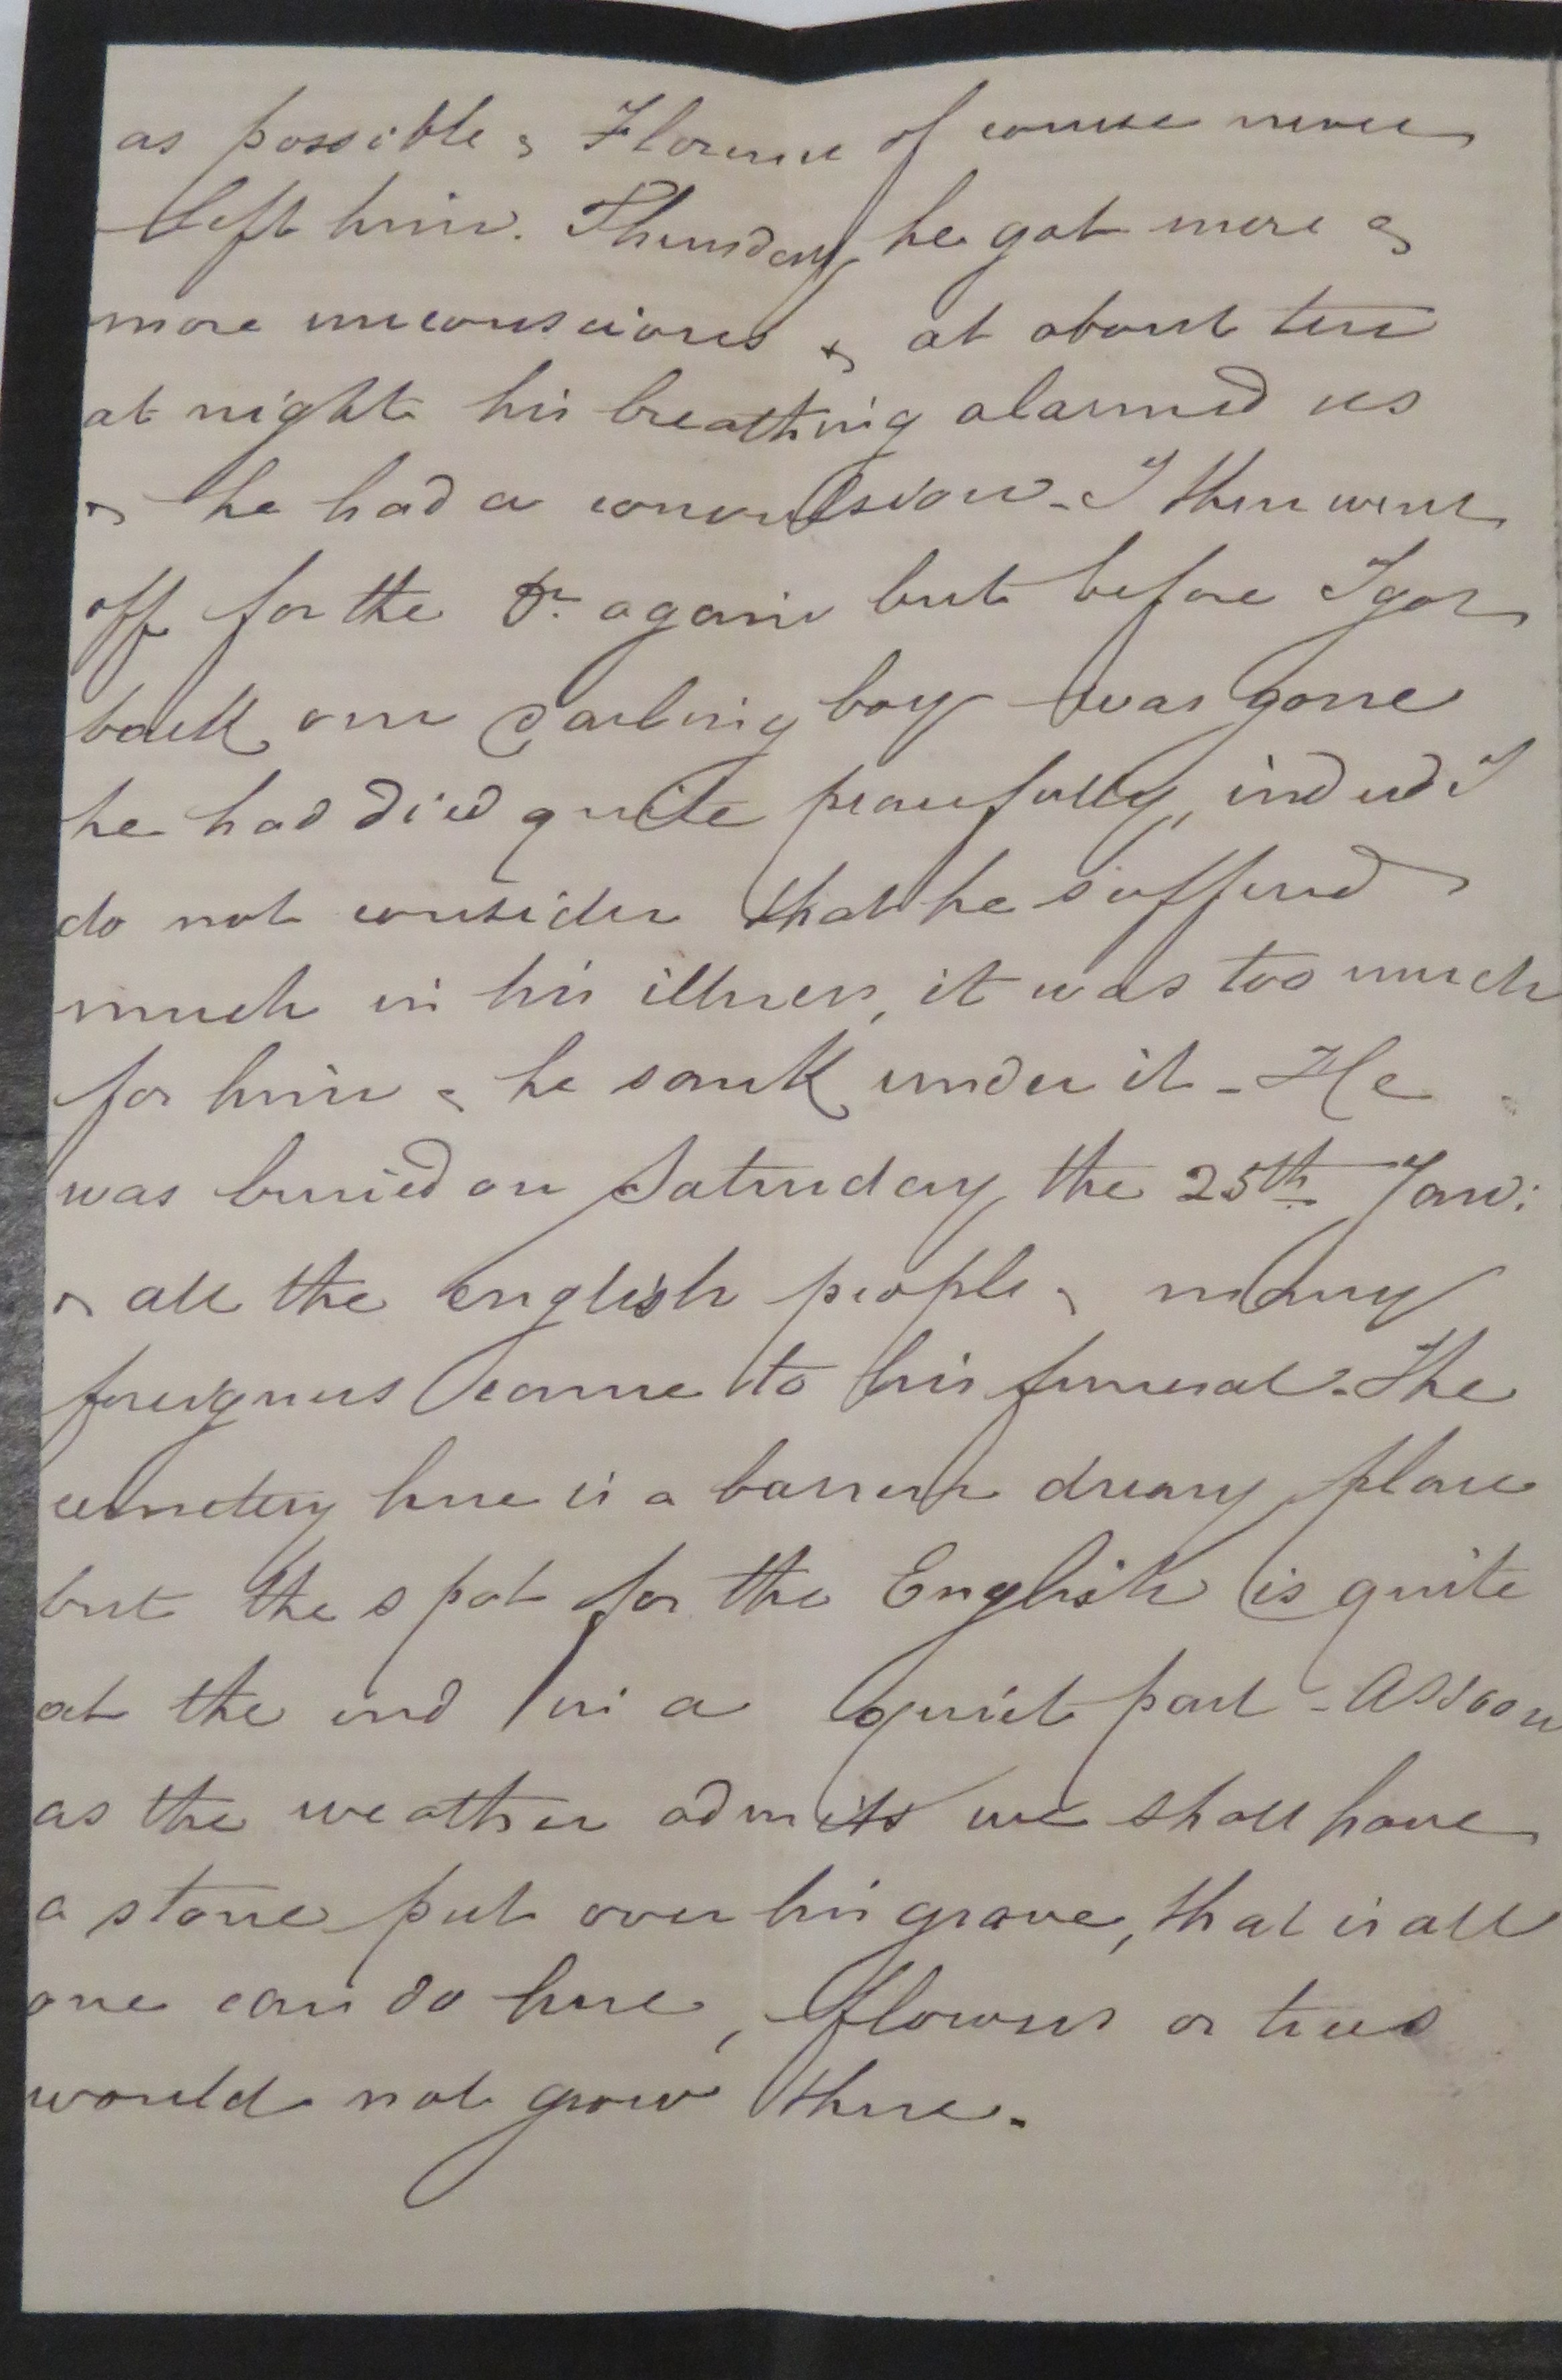 as possible & Florence of course never
left him. Thursday he got more &
more unconscious & at about ten
at night his breathing alarmed us
& he had a convulsion - I then went
off for the Dr. again but before I got
back our darling boy was gone
he had died quite peacefully, indeed I
do not consider that he suffered
much in his illness, it was too much
for him & he sank under it - He
was buried on Saturday the 25th Jan:
& all the english people & many
foreigners came to his funeral - The
cemetery here is a barren dreary place
but the spot for the English is quite
at the end in a quiet part - As soon
as the weather admits we shall have
a stone put over his grave, that is all
one can do here, flowers or trees
would not grow there.